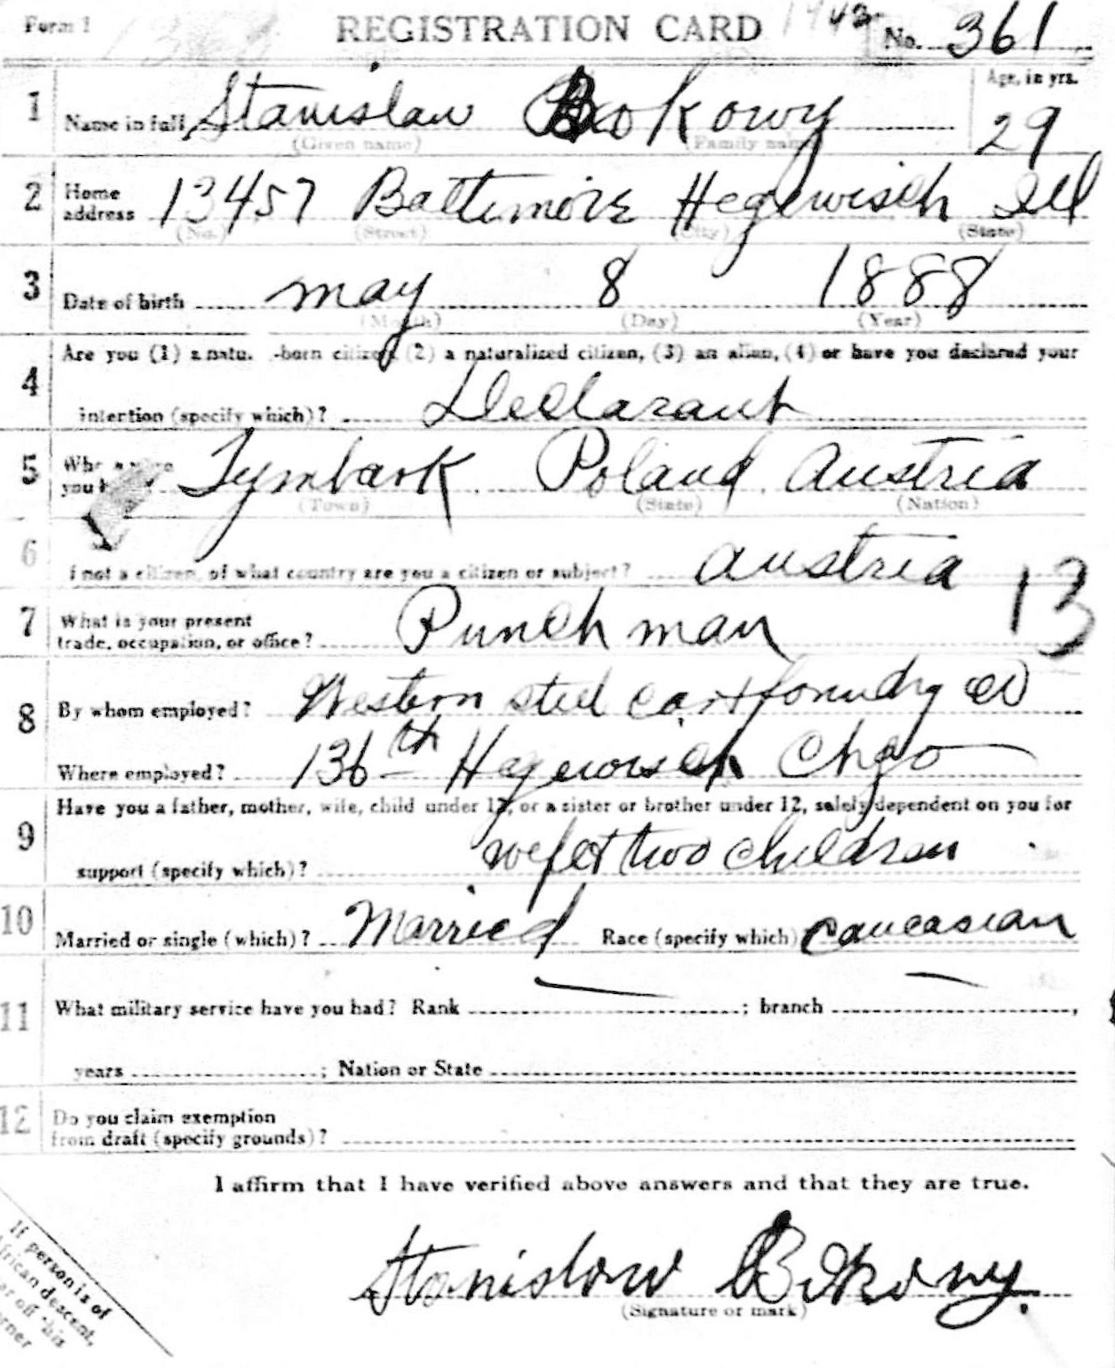 Form 1 REGISTRATION CARD No. 361
1 Name in full Stanislaw Bokowy Age, in yrs. 29
(Given name) (Family name)
2 Home address 13457 Baltimore Hegewisch Ill
(No.) (Street) (City) (State)
3 Date of birth may 8 1888
(Month) (Day) (Year)
Are you (1) a natu. -born citizen, (2) a naturalized citizen, (3) an alien, (4) or have you declared your
4 intention (specify which)? Declarant
5 Where were you Tymbark Poland Austria
(Town) (State) (Nation)
6 I not a citizen, of what country are you a citizen or subject? Austria
13
7 What is your present
trade, occupation, or office? Punch man
8 By whom employed? Western steel car + foundry co
Where employed? 136th Hegewisch Chgo
Have you a father, mother, wife, child under 12, or a sister or brother under 12, solely dependent on you for
9 support (specify which)? wife + two children
10 Married or single (which)? Married Race (specify which) Caucasian
11 What military service have you had? Rank ; branch ,
years ; Nation or State
12 Do you claim exemption
from draft (specify grounds)?
I affirm that I have verified above answers and that they are true.
Stanislaw
(Signature or mark)
If person is of
African descent,
corner